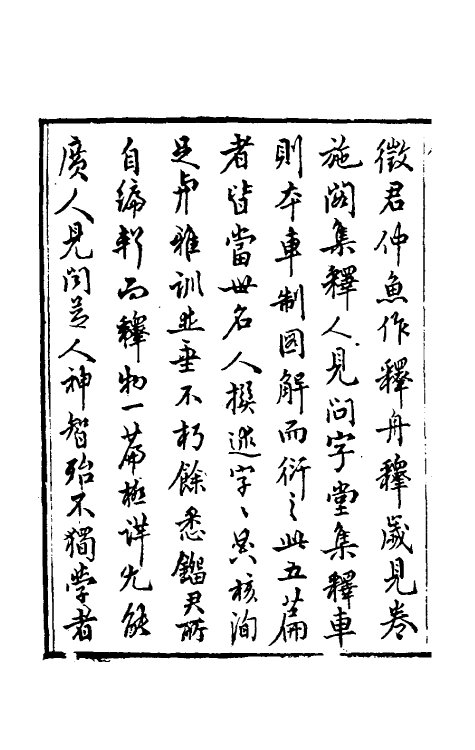 徵君仲魚作釋舟釋歲見卷
施閣集釋人見问字堂集釋車
則本車制圖解而衍之此五篇
者皆當世名人撰述字〻典核洵
足與雅訓並垂不朽餘悉鑑君所
自編輯而釋物一篇極詳尤能
廣人見闻益人神智殆不獨學者